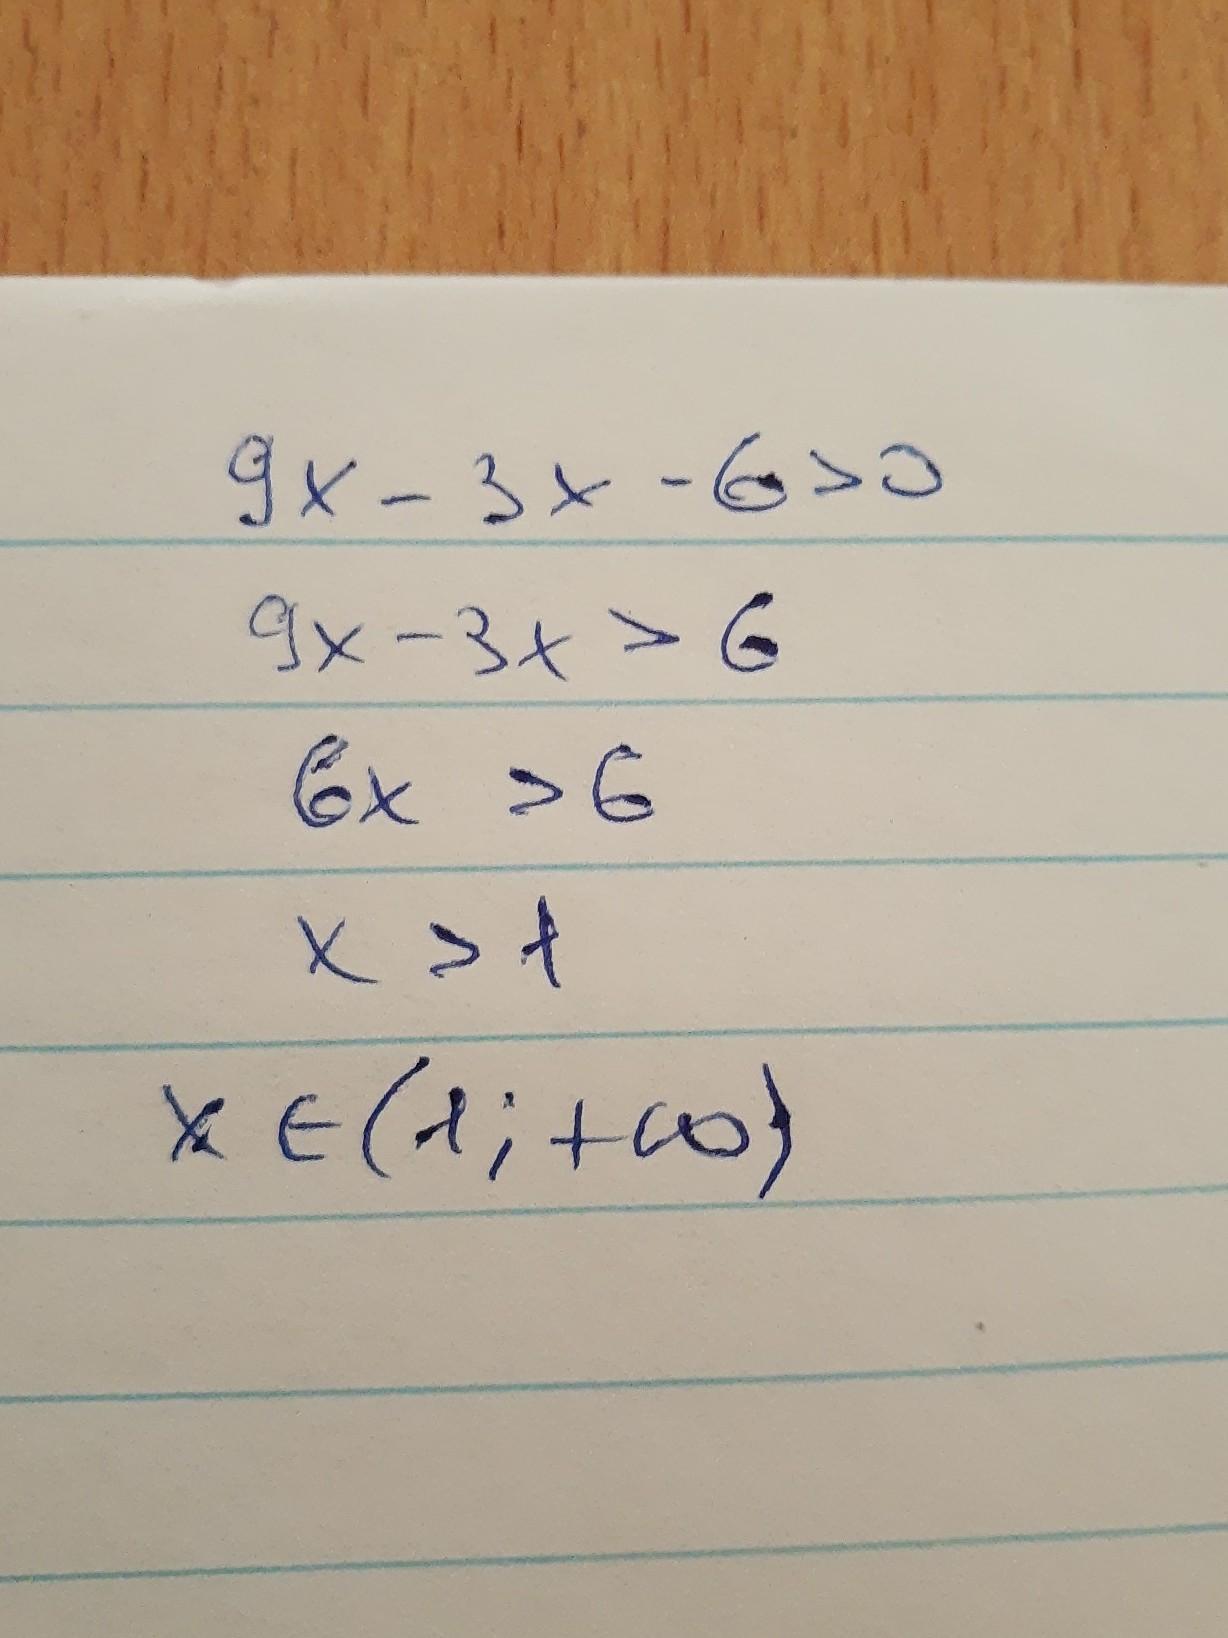 9x - 3x - 6 > 0
9x - 3x > 6
6x > 6
x > 1
x ∈ (1; +∞)